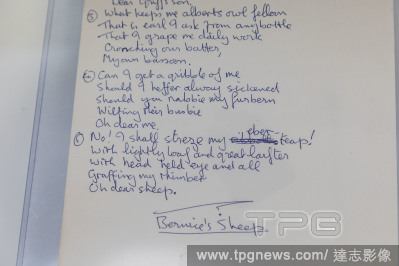 Dear Griffson.
③ What keeps me alberts owl fellorn
That is earl I ask from any bottle
That I grape me daily work
Cronching our batter,
My own bassoon.
④ Can I get a gribble of me
Should I heffer alway sickened
Should you nabbie my furbern
Wilting their busbie
Oh dear me.
⑤ No! I shall streze my eber-teap!
With lightly loaf and great laughter
With head held eye and all
Graffing my thumber
Oh dear sheep.
Bernie's Sheep.
TPG
www.tpgnews.com / 達志影像